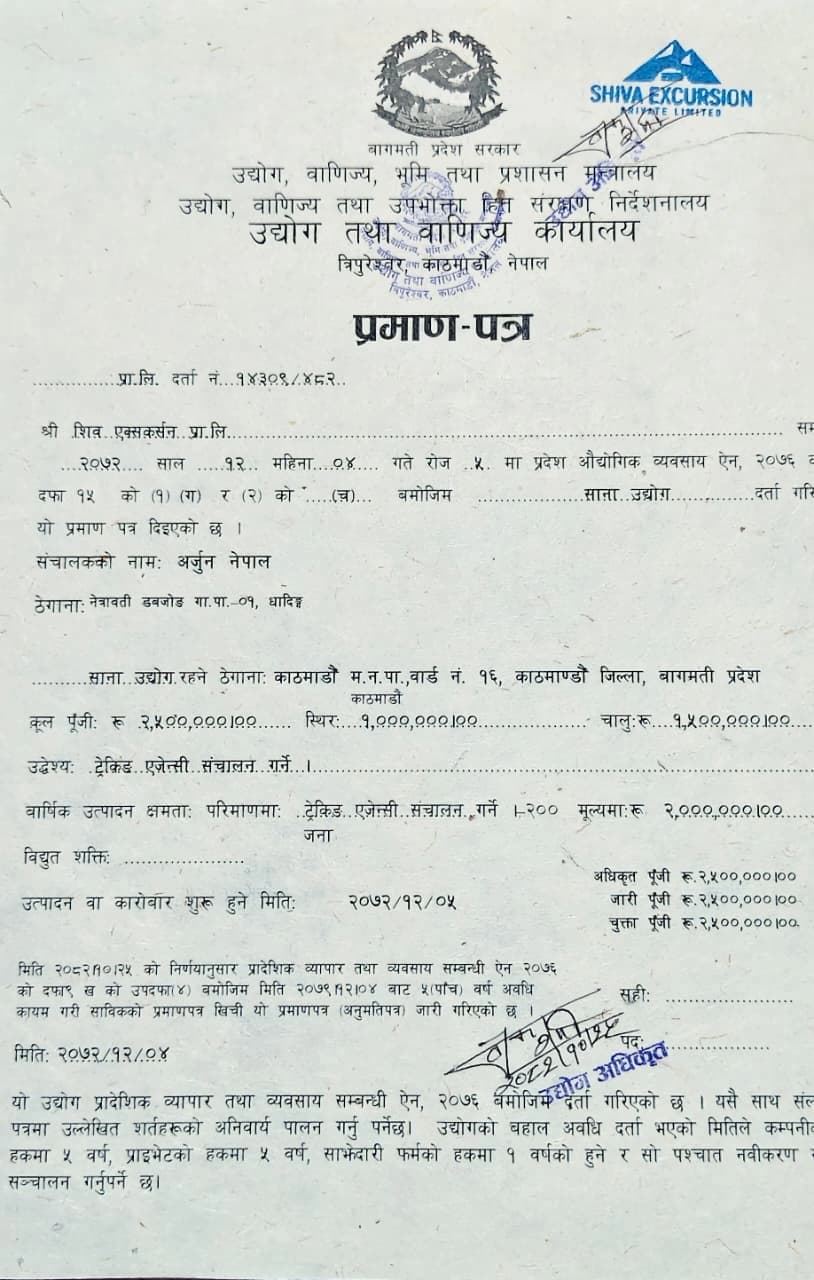 SHIVA EXCURSION
PRIVATE LIMITED
बागमती प्रदेश सरकार
उद्योग, वाणिज्य, भूमि तथा प्रशासन मन्त्रालय
उद्योग, वाणिज्य तथा उपभोक्ता हित संरक्षण निर्देशनालय
उद्योग तथा वाणिज्य कार्यालय
त्रिपुरेश्वर, काठमाडौं, नेपाल
प्रमाण-पत्र
...............प्रा.लि. दर्ता नं...१४३०९/४८२..
श्री शिव एक्सकर्सन प्रा.लि.
....२०७२... साल ....१२.. महिना....०४.... गते रोज ..५. मा प्रदेश औद्योगिक व्यवसाय ऐन, २०७६
दफा १५ को (१) (ग) र (२) को .....(च).. बमोजिम ................साना उद्योग.............दर्ता गरि
यो प्रमाण पत्र दिइएको छ ।
संचालकको नाम: अर्जुन नेपाल
ठेगाना: नेत्रावती डबजोङ गा.पा.-०१, धादिङ्ग
..........साना उद्योग रहने ठेगाना: काठमाडौं म.न.पा.,वार्ड नं. १६, काठमाण्डौं जिल्ला, बागमती प्रदेश
काठमाडौं
कूल पूँजी: रू २,५००,०००।००...... स्थिर:...१,०००,०००।००................ चालु:रू....१,५००,०००।००....
उद्देश्य: ट्रेकिङ एजेन्सी संचालन गर्ने ।
वार्षिक उत्पादन क्षमता: परिमाणमा: ट्रेकिङ एजेन्सी संचालन गर्ने ।-२०० मूल्यमा:रू २,०००,०००।००
जना
विद्युत शक्ति: ......................
अधिकृत पूँजी रू.२,५००,०००।००
उत्पादन वा कारोबार शुरू हुने मिति: २०७२/१२/०५
जारी पूँजी रू.२,५००,०००।००
चुक्ता पूँजी रू.२,५००,०००।००
मिति २०८२।१०।२५ को निर्णयानुसार प्रादेशिक व्यापार तथा व्यवसाय सम्बन्धी ऐन २०७६
को दफा९ ख को उपदफा(४) बमोजिम मिति २०७९।१२।०४ बाट ५(पाँच) वर्ष अवधि
कायम गरी साविकको प्रमाणपत्र खिची यो प्रमाणपत्र (अनुमतिपत्र) जारी गरिएको छ ।
सही: ......................
मिति: २०७२/१२/०४
पद:......................
उद्योग अधिकृत
यो उद्योग प्रादेशिक व्यापार तथा व्यवसाय सम्बन्धी ऐन, २०७६ बमोजिम दर्ता गरिएको छ । यसै साथ संल
पत्रमा उल्लेखित शर्तहरूको अनिवार्य पालन गर्नु पर्नेछ। उद्योगको बहाल अवधि दर्ता भएको मितिले कम्पनी
हकमा ५ वर्ष, प्राइभेटको हकमा ५ वर्ष, साझेदारी फर्मको हकमा १ वर्षको हुने र सो पश्चात नवीकरण
सञ्चालन गर्नुपर्ने छ।